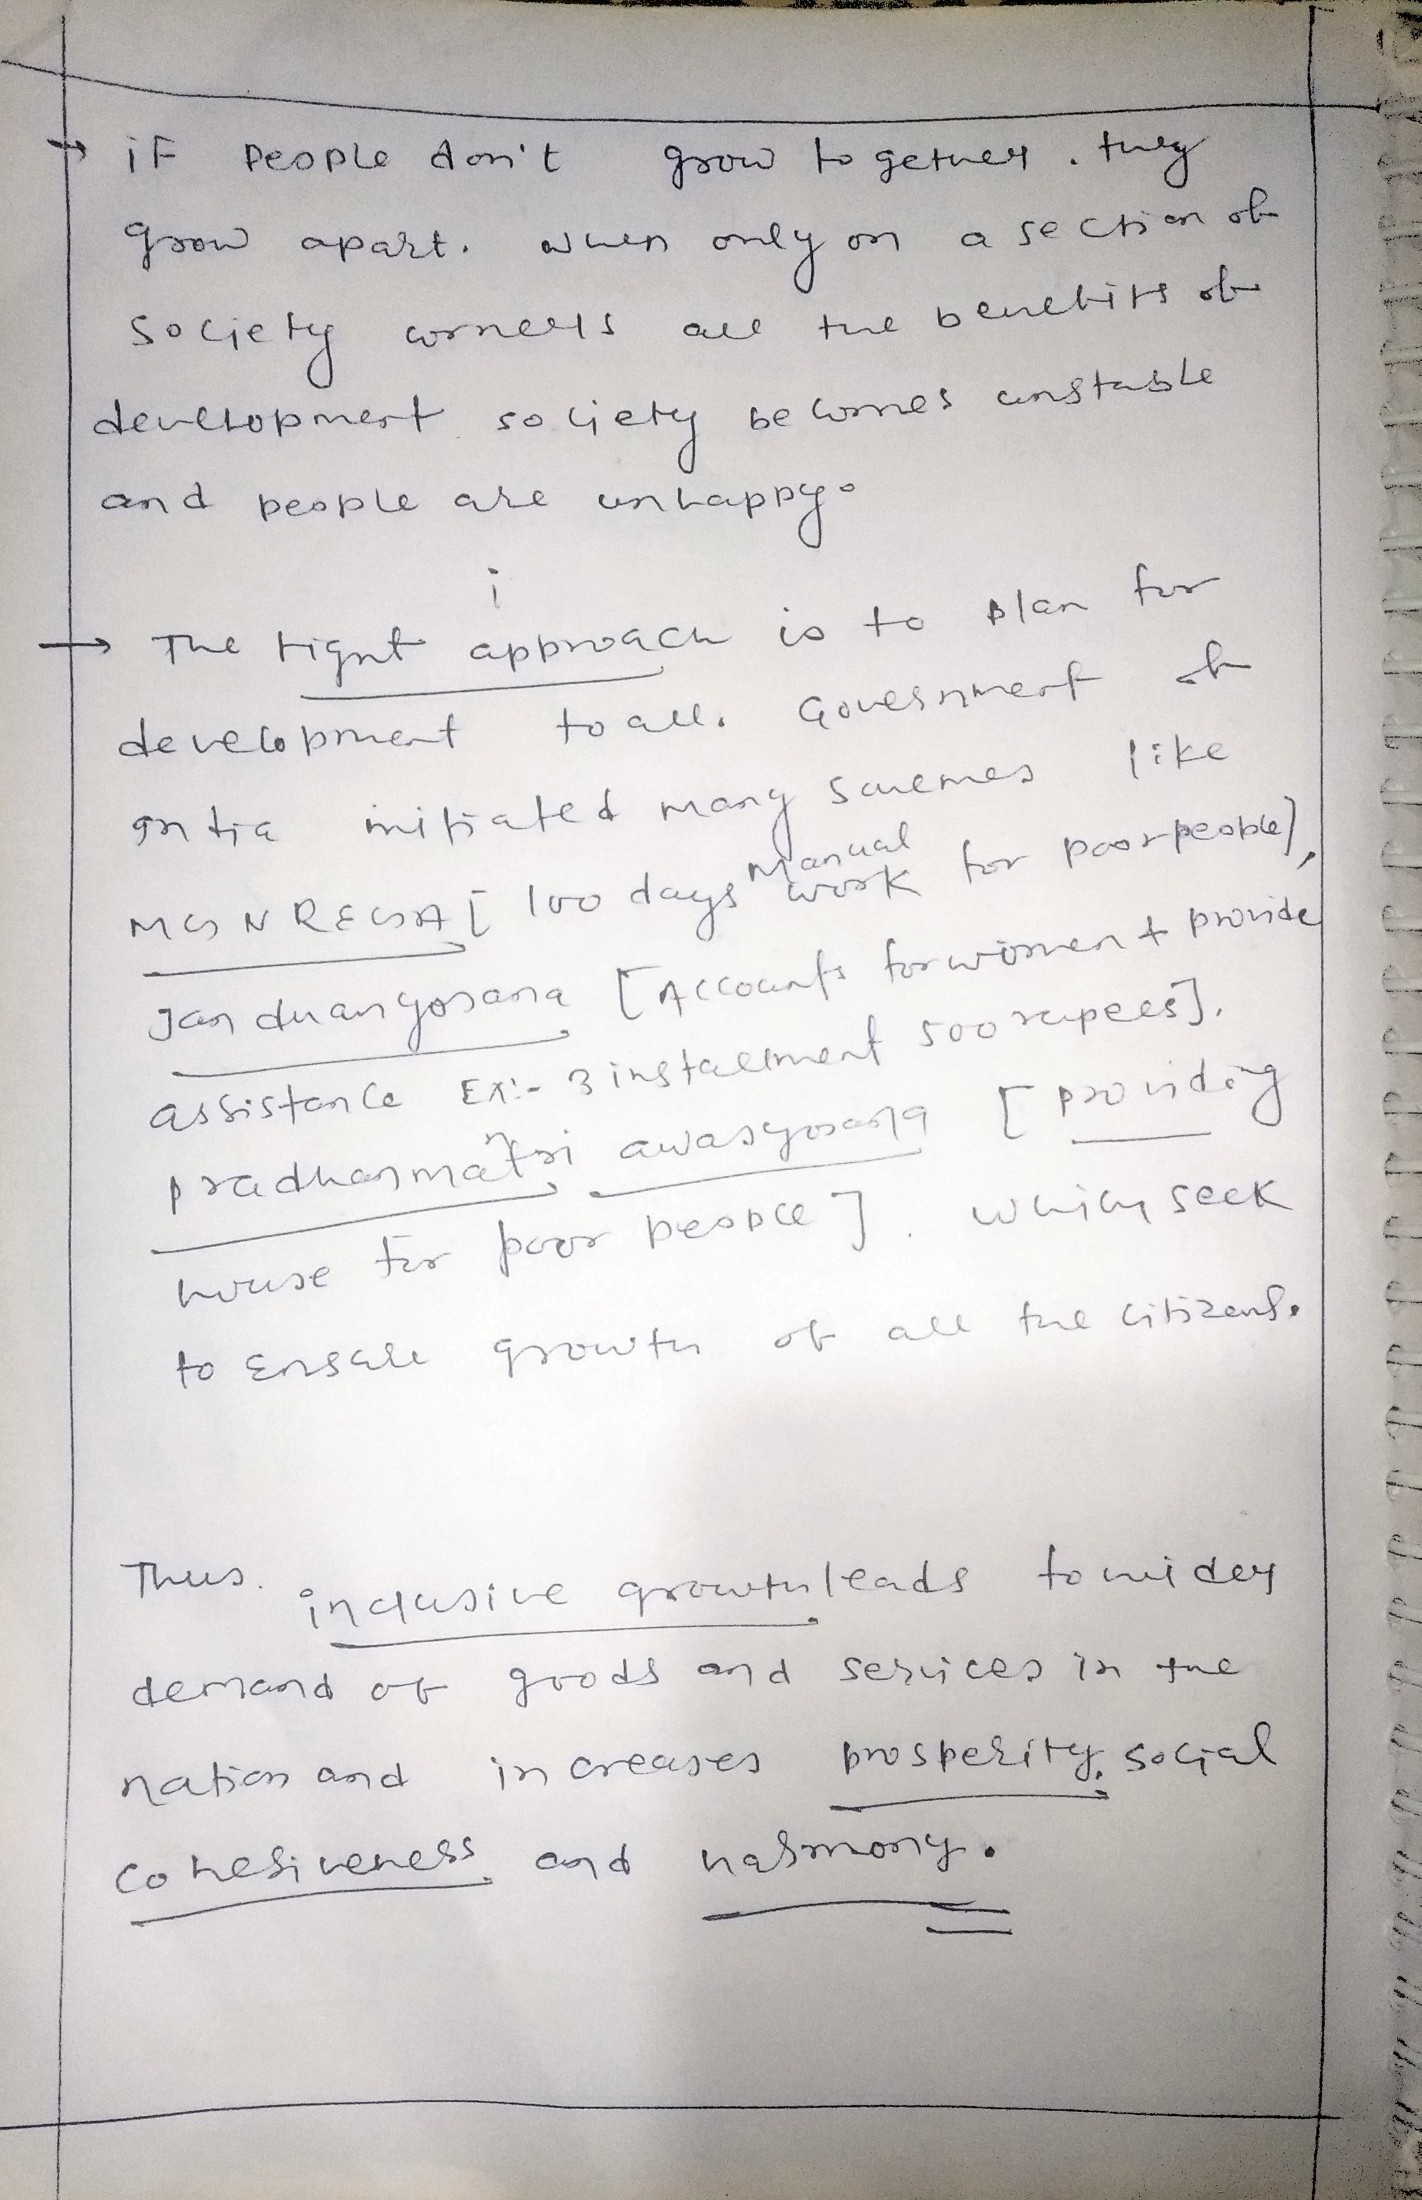 → if people don't grow together. they
grow apart. when only on a section of
society corners all the benefits of
development society becomes unstable
and people are unhappy.
i
→ The right approach is to plan for
development to all. Government of
India initiated many schemes like
MGNREGA [ 100 days Manual work for poor people],
Jan dhan yojana [Accounts for women + provide
assistance Ex:- 3 installment 500 rupees].
pradhanmantri awas yojana [ providing
house for poor people ]. which seek
to Ensure growth of all the citizens.
Thus. inclusive growth leads to wider
demand of goods and services in the
nation and increases prosperity, social
cohesiveness and harmony.